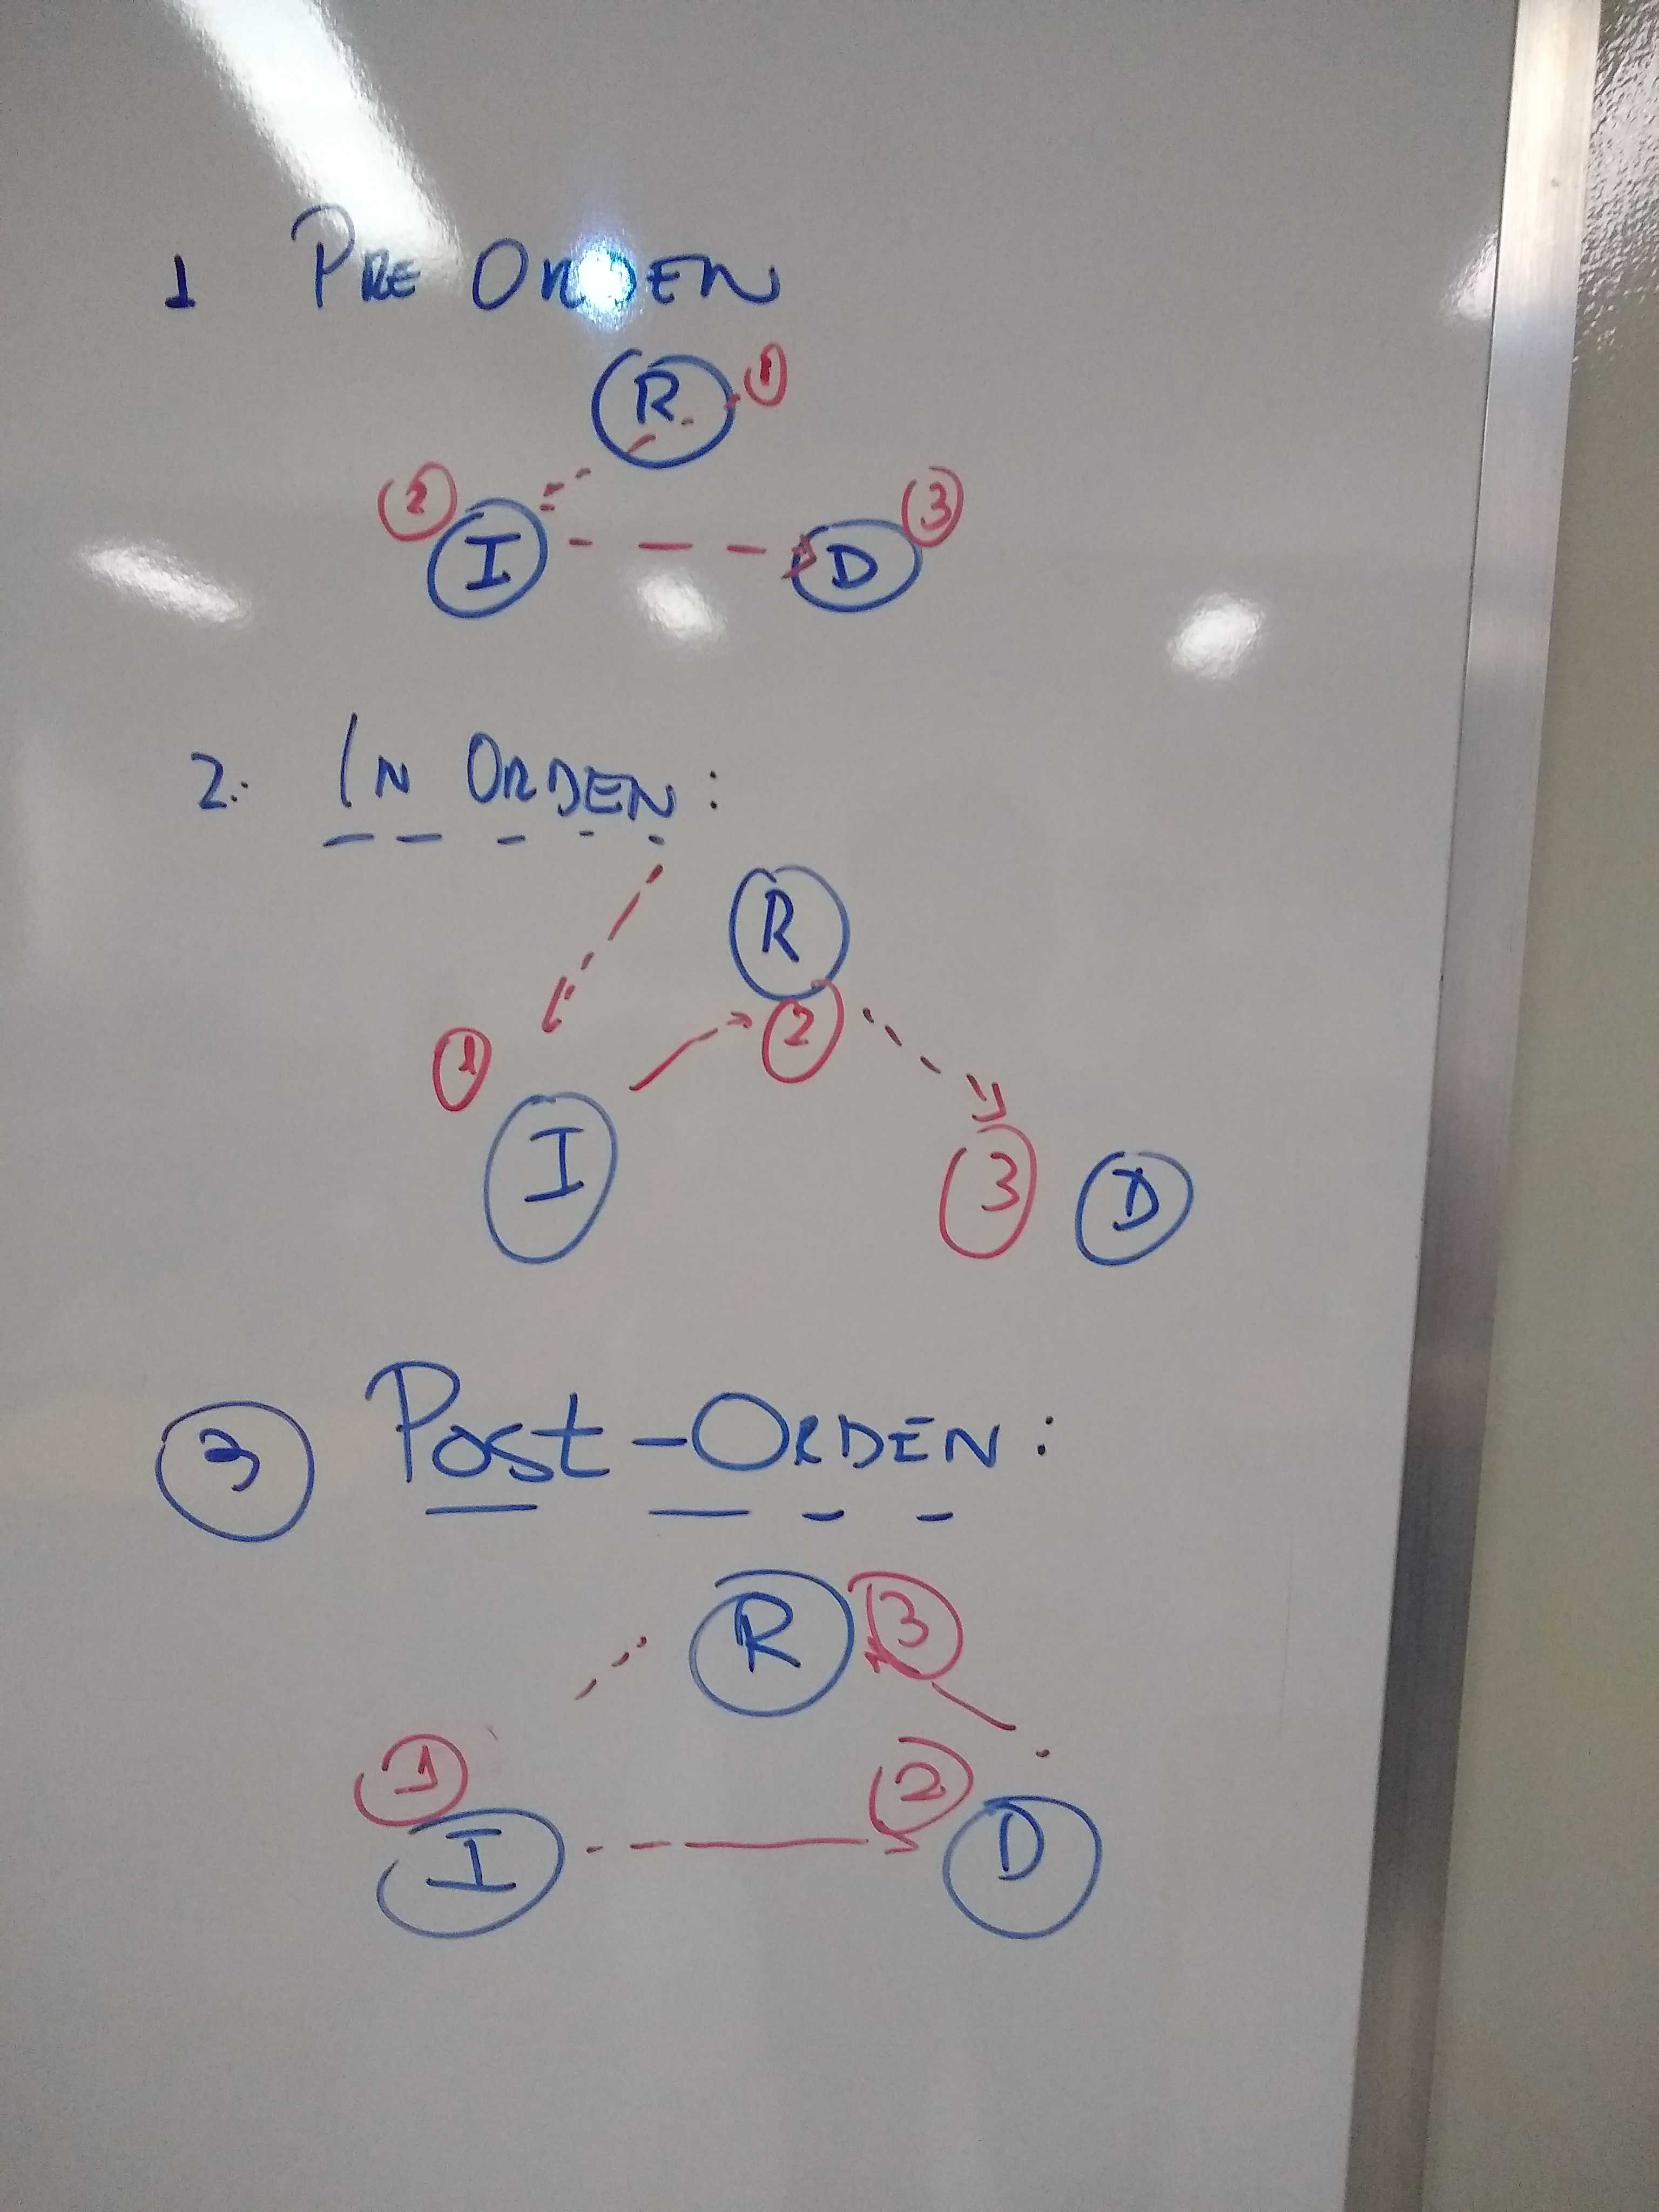 1 PRE ORDEN
R 1
2 I D 3
2. IN ORDEN:
R
1 2
I 3 D
3 Post-ORDEN:
R 3
1 2
I D